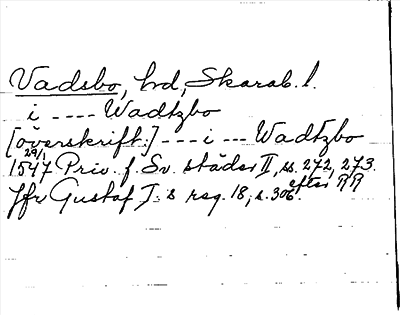 Vadsbo, hd, Skarab. l.
i ---- Wadtzbo
[överskrift:] --- i --- Wadtzbo
29/1 1547 Priv. f. Sv. städer II, ss. 272, 273.
Jfr Gustaf I:s reg. 18, s. 306. efter RR